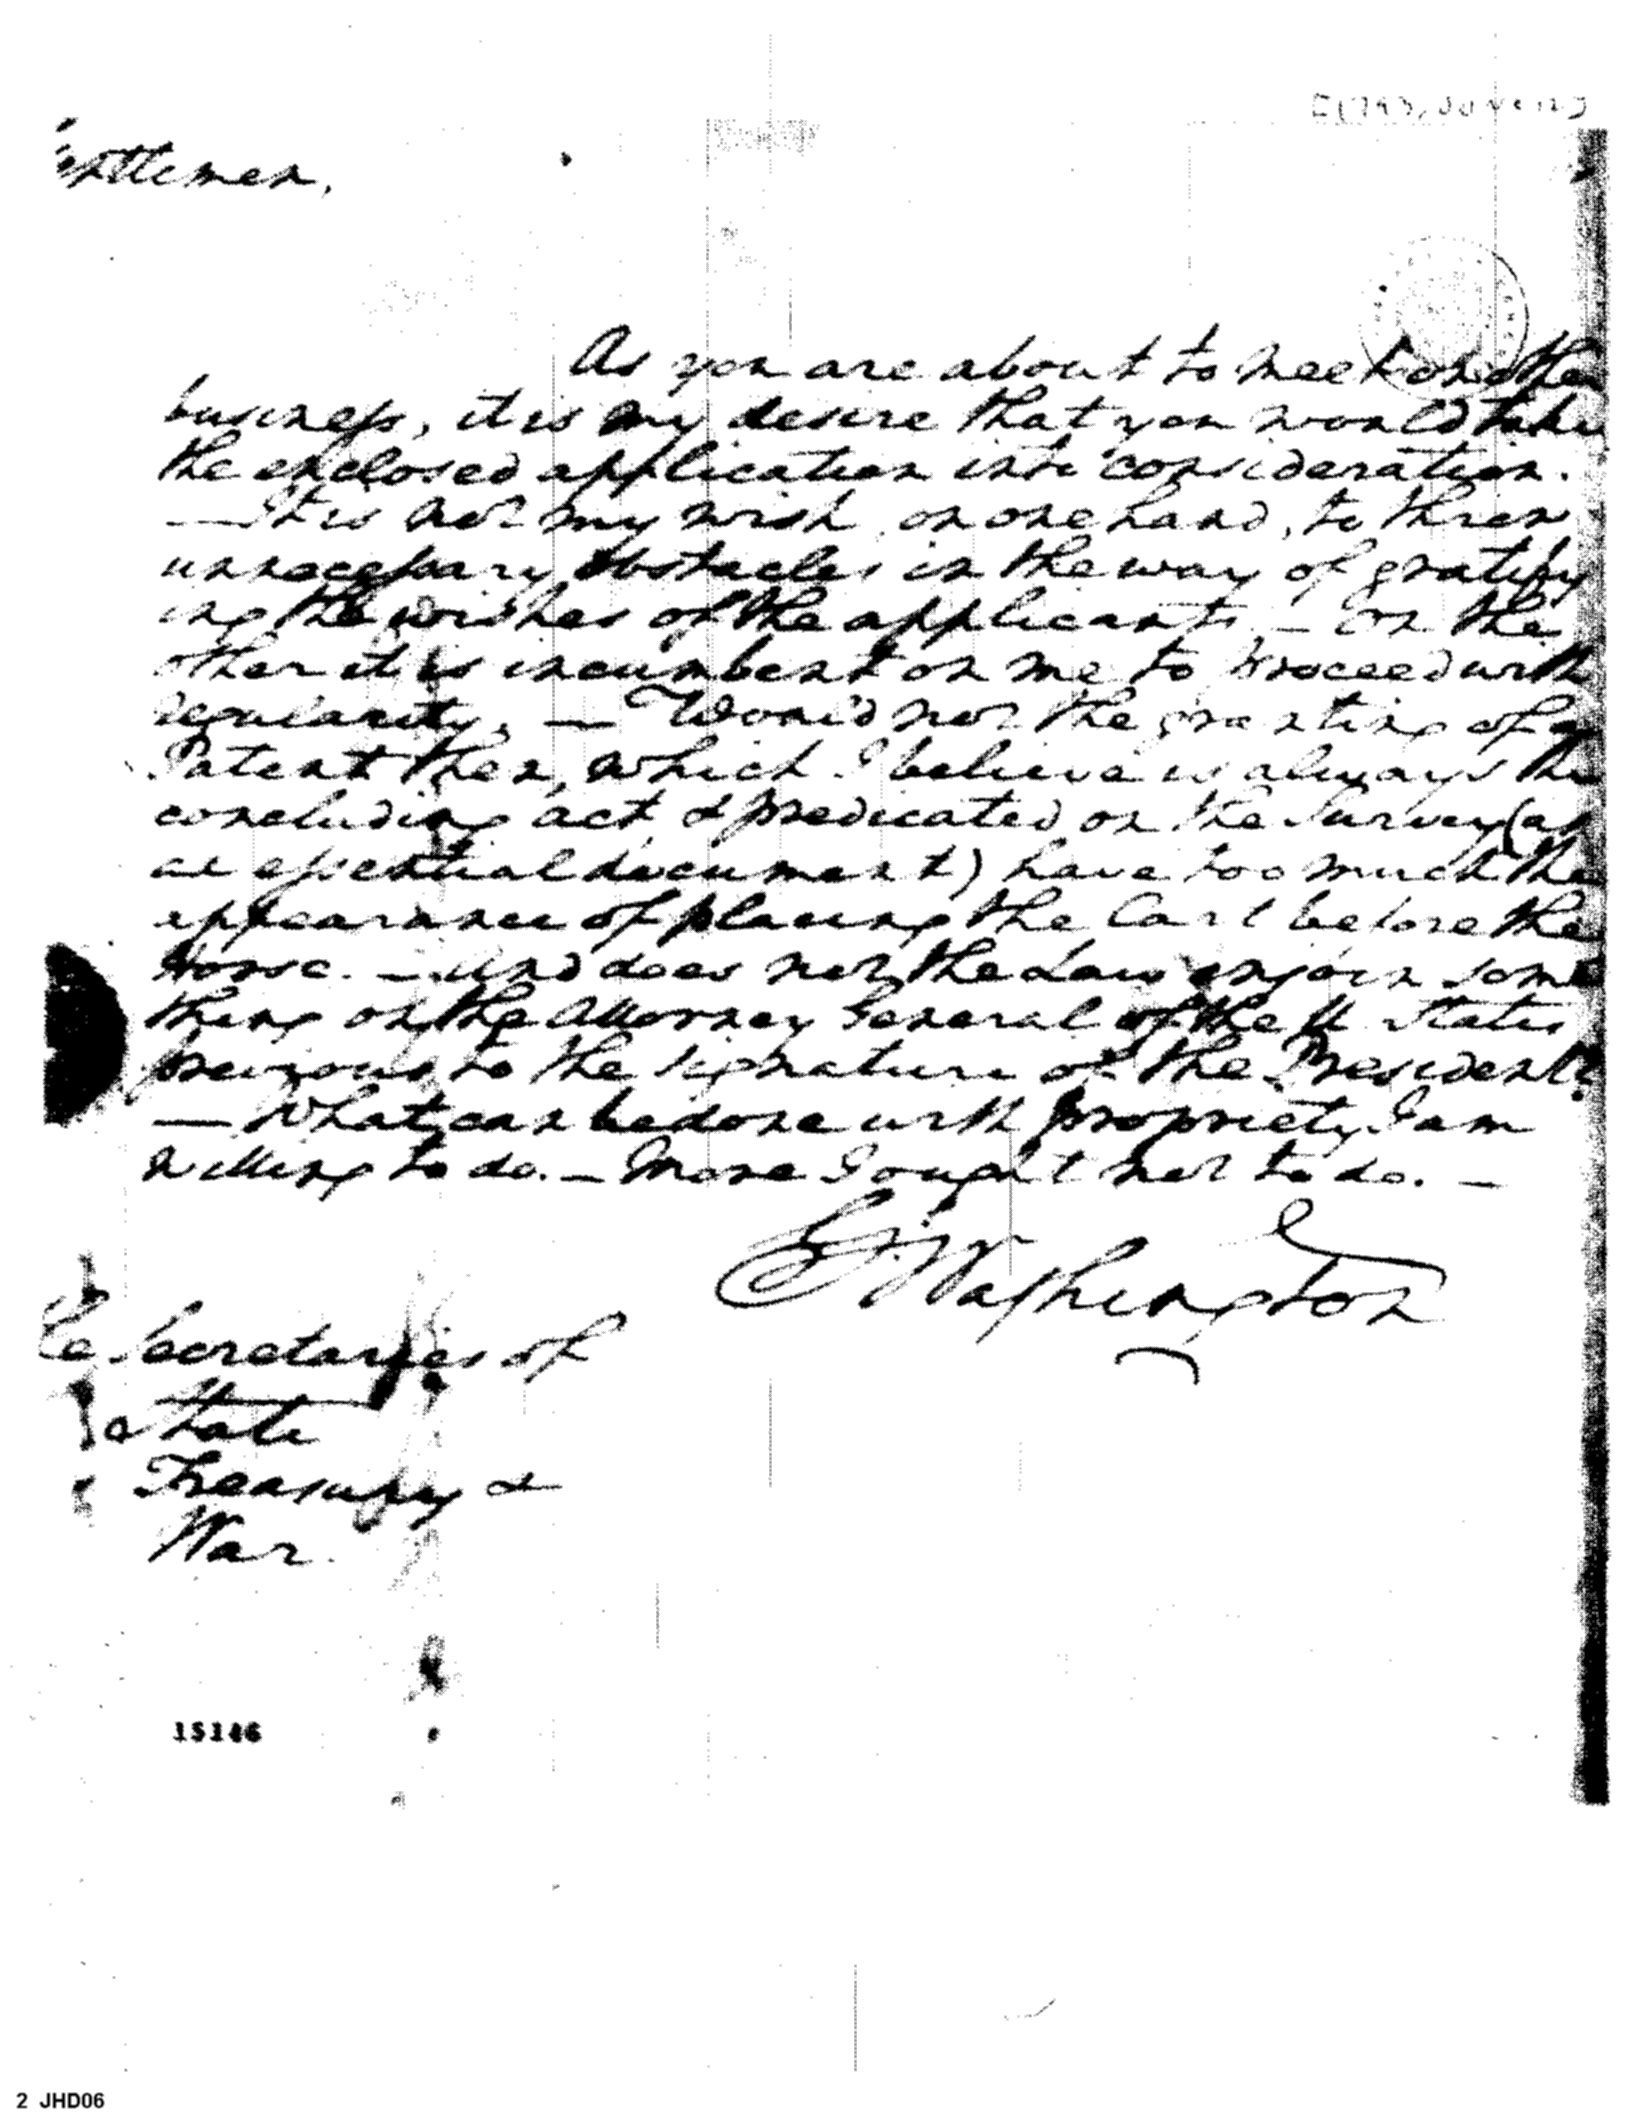 [1793, June 12]
Gentlemen,
As you are about to meet on other
business, it is my desire that you would take
the enclosed application into consideration.
— It is not my wish, on one hand, to threw
unnecessary obstacles in the way of gratify
ing the wishes of the applicants. — On the
other it is incumbent on me to proceed with
regularity. — Would not the granting of a
Patent then, which I believe is always the
concluding act, & predicated on the Survey (as
an essential document) have too much the
appearance of placing the Cart before the
Horse. — And does not the Law enjoin some
thing on the Attorney General of the U States
previous to the signature of the President?
— What can be done with propriety I am
willing to do. — More I ought not to do. —
Go: Washington
The Secretaries of
State
Treasury &
War.
15146
2 JHD06